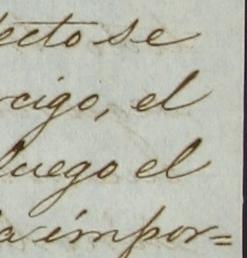 ecto se
cigo, el
luego el
a impor=